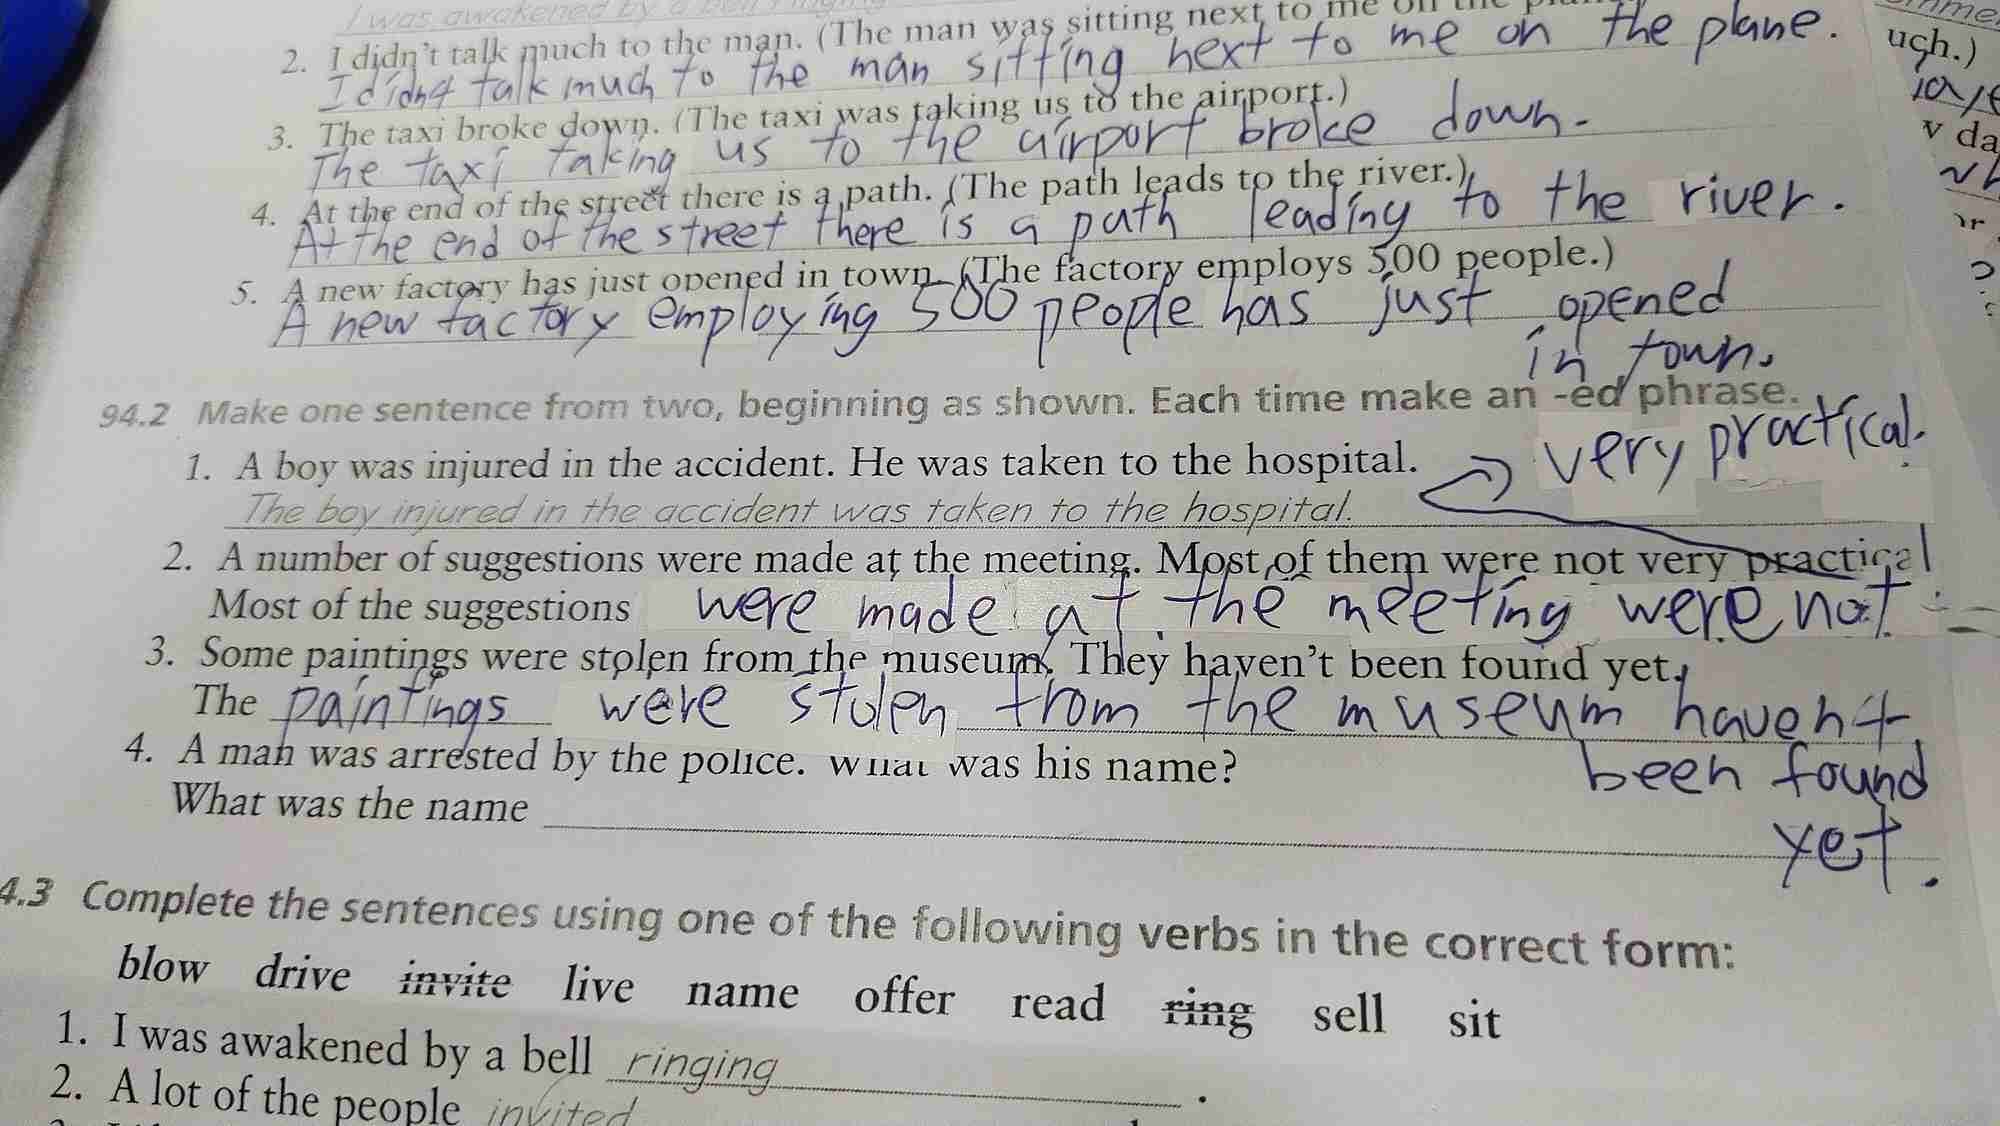 I was awakened by a bell ringing
2. I didn't talk much to the man. (The man was sitting next to me on the
I didn4 talk much to the man sitting next to me on the plane.
ugh.)
3. The taxi broke down. (The taxi was taking us to the airport.)
The taxi taking us to the airport broke down.
v da
4. At the end of the street there is a path. (The path leads to the river.)
At the end of the street there is a path leading to the river.
5. A new factory has just opened in town. (The factory employs 500 people.)
A new factory employing 500 people has just opened
in town.
94.2 Make one sentence from two, beginning as shown. Each time make an -ed phrase.
1. A boy was injured in the accident. He was taken to the hospital.
very practical.
The boy injured in the accident was taken to the hospital.
2. A number of suggestions were made at the meeting. Most of them were not very practical
Most of the suggestions were made at the meeting were not
3. Some paintings were stolen from the museum. They haven't been found yet.
The paintings were stolen from the museum haven4
been found
yet.
4. A man was arrested by the police. What was his name?
What was the name
4.3 Complete the sentences using one of the following verbs in the correct form:
blow drive invite live name offer read ring sell sit
1. I was awakened by a bell ringing.
2. A lot of the people invited